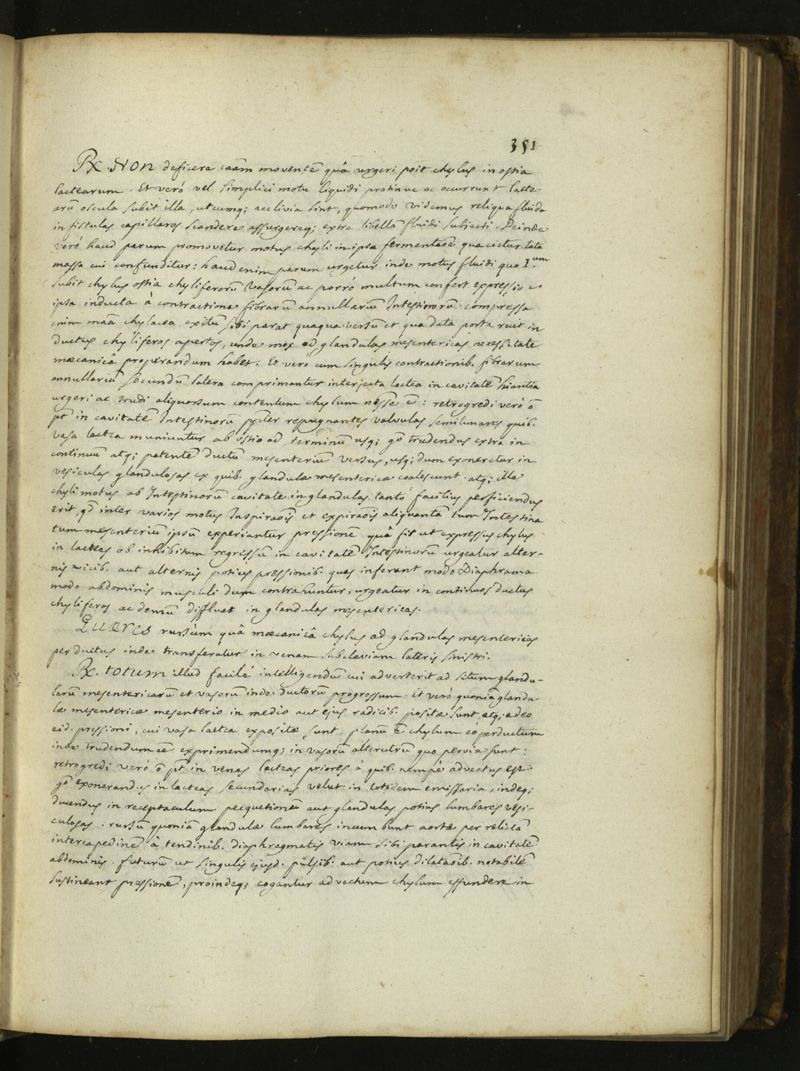 351
Rx Non deficere caãm moventẽ quâ urgeri poit chylus in ostia
lactearum. Et veró vel simplici motu liquidi protinus ac occurrunt lacte-
arũ oscula subit illa, utcumq; acclivia sint, quomodo videmus reliqua fluida
in fistulas capillares scandere assurgereq; extra libellã fluidi subjecti. Deinde
veró haud parum promovetur motus chyli in ipsa fermentaõe qua cietur tota
massa cui confunditur: haud enim parum urgetur inde motus fluidi quo 1.um
subit chylus ostia chyliferorũ vasorũ ac porró multum confert expressio
ipsa inducta à contractione fibrarũ annullariũ Intestinorũ: compressa
enim mãa chylacea exitũ sibi parat quaqua versũ et qua data porta ruit in
ductus chyliferos apertos, unde mox ad glandulas mesentericas necessitate
mœcanicâ properandum habet: Et veró cum singulis contractionib. fibrarum
annullariũ secundũ latera comprimantur interjecta lactea in cavitatẽ hiantia
urgeri ac trudi aliquorsum contentum chylum nẽsse ẽ: retrogredi veró õ
pt̃ in cavitatẽ Intestinorũ repugnantes valvulas semilunares quib.
vasa lactea muniuntur ab ostio ad terminũ usq; gõ trudendus extra in
continuũ atq; patentẽ ductũ mesenteriũ versus, usq; dum exoneretur in
vesiculas glandulosas ex quib. glandulæ mesentericæ coalescunt atq; ille
chyli motus ab Intestinorũ cavitate in glandulas tanto facilius perficiendus
erit, qõ inter varios motus Inspiraõis et expiraõis aliquantã tum Intestina
tum mesenteriũ ipsũ experiantur pressionẽ quâ fit ut expressus chylus
in lacteas ob inhibitum regressũ in cavitatẽ Intestinorũ urgeatur alter-
nis vicib. aut alternis potius pressionib. quas inferunt modo Diaphrama
modo abdominis musculi dum contrahuntur, urgeatur in continuos ductus
chyliferos ac demũ diffluat in glandulas mesentericas.
Quæres rursùm quâ mœcanicâ chylus ad glandulas mesentericas
per ductus inde transferatur in venam subclaviam lateris sinistri.
Rx. totum illud facilé intelligendũ cui adverterit ad situm glandu-
larũ mesentericarũ et vasorũ inde ductorũ progressum. Et veró quoniã glandu-
læ mesentericæ mesenterio in medio aut ejus radicib. positæ sunt, atq; adeo
eid. pressioni, cui vasa lactea expositæ sunt, planũ ẽ chylum eó perductum
inde trudendum eẽ exprimendumq; in vasorũ alterutrũ quo pervia sunt:
retrogredi veró õ pt̃ in venas lacteas priores á quib. nempé advectus est
gõ exonerandus in lacteas secundarias velut in totidem emissaria, indeq;
ducendus in receptaculum pecquetianũ aut glandulas potius lumbares vesi-
culosas. rursũ quoniã glandulæ lumbares incumbunt aortæ per relictã
intercapedinẽ â tendinib. diaphragmatis viam sibi parantis in cavitatẽ
abdominis. futurũ ut singulis ejusd. pulsib. aut potius dilataõib. notabilẽ
sustineant pressionẽ, proindeq; cogantur advectum chylum effundere in